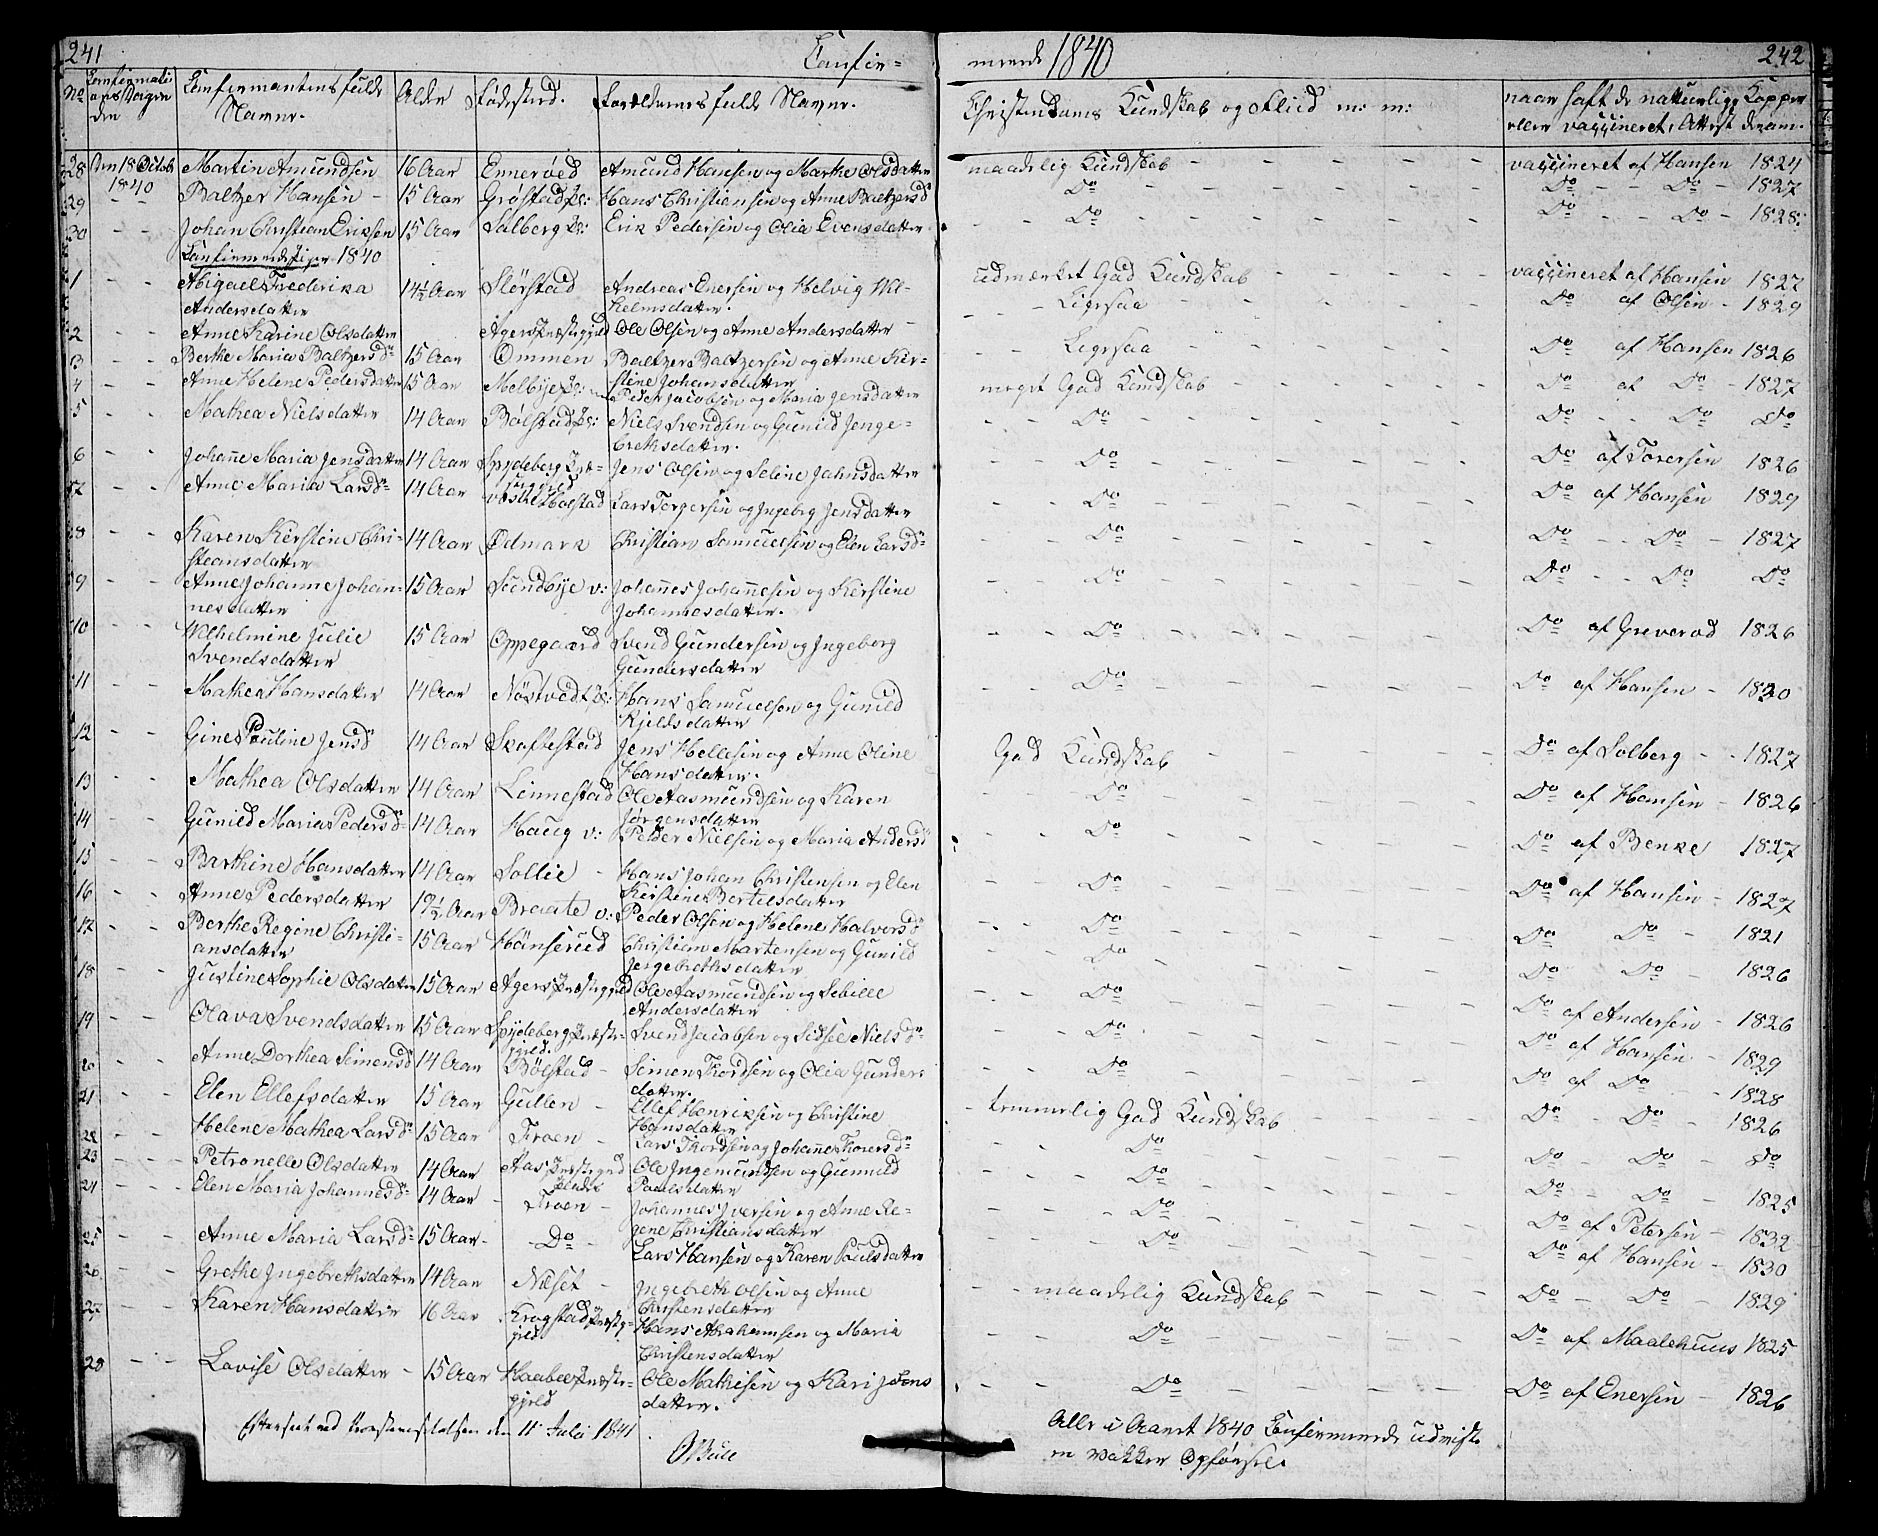 241
Confir-
merede 1840
242
No Confirmations Dagen Confirmantens fulde Navne. Alder Fødested. Forældrenes fulde Navne. Christendoms Kundskab og Flid m: m: naar haft de naturlige Kopper eller vaccineret, Attest derom.
28 Den 18 Octob 1840 Martin Amundsen 16 Aar Ennerøed Amund Hansen og Marthe Olsdatter maadelig Kundskab vaccineret af Hansen 1824
29 Baltzer Hansen 15 Aar Grøstad Hans Christiansen og Anne Baltzersd Do Do Do 1827
30 Johan Christian Eriksen 15 Aar Solberg Erik Pedersen og Olia Evensdatter Do Do Do 1828
Confirmerede Piger 1840
1 Abigael Frederika Andersdatter 14½ Aar Slørstad Andreas Enersen og Helvig Wilhelmsdatter. udmærket God Kundskab vaccineret af Hansen 1827
2 Anne Karine Olsdatter Agers Præstegjeld Ole Olsen og Anne Andersdatter Ligesaa Do af Olsen 1829
3 Berthe Maria Baltzersd 15 Aar Ommen Baltzer Baltzersen og Anne Kirstine Johansdatter Ligesaa Do af Hansen 1826
4 Anne Helene Pedersdatter 15 Aar Melbye Peder Jacobsen og Maria Jensdatter meget God Kundskab Do af Do 1827
5 Mathea Nielsdatter 14 Aar Bølstad Niels Svendsen og Gunild Jengebrethsdatter. Do Do Do Do
6 Johanne Maria Jensdatter 14 Aar Spydeberg Prestegjeld Jens Olsen og Seline Jahnsdatter Do Do af Torersen 1826
7 Anne Maria Larsd 14 Aar vestre Holstad Lars Torgersen og Ingeborg Jensdatter Do Do af Hansen 1829
8 Karen Kirstine Christeansdatter 14 Aar Ødmark Christian Samuelsen og Elen Larsd Do Do Do 1827
9 Anne Johanne Johannesdatter 15 Aar Sundbye v: Johannes Johannesen og Kirstine Johannesdatter. Do Do Do Do
10 Wilhelmine Julie Svendsdatter 15 Aar Oppegaard Svend Gundersen og Ingeborg Gundersdatter Do Do af Greverød 1826
11 Mathea Hansdatter 14 Aar Nøstvedt Hans Samuelsen og Gunild Kjeldsdatter Do Do af Hansen 1830
12 Gine Pauline Jensd 14 Aar Skoftestad Jens Hellesen og Anne Oline Hansdatter. God Kundskab Do af Solberg 1827
13 Mathea Olsdatter 14 Aar Linnestad Ole Aasmundsen og Karen Jørgensdatter Do Do af Hansen 1826
14 Gunild Maria Pedersd 14 Aar Haug v: Peder Nielsen og Maria Andersd Do Do af Benke 1827
15 Barthine Hansdatter 14 Aar Sollie Hans Johan Christensen og Elen Kirstine Bertelsdatter Do Do af Hansen 1827
16 Anne Pedersdatter 19½ Aar Braate v: Peder Olsen og Helene Halversd Do Do Do 1821
17 Berthe Regine Christiansdatter 15 Aar Hønserud Christian Martensen og Gunild Jergebrethsdatter Do Do Do 1826
18 Justine Sophie Olsdatter 15 Aar Agers Præstegjeld Ole Aasmundsen og Sebille Andersdatter Do Do af Andersen 1826
19 Olava Svendsdatter 15 Aar Spydeberg Præstegjeld. Svend Jacobsen og Sidsee Nielsd Do Do af Hansen 1829
20 Anne Dorthea Simensd 14 Aar Bølstad Simen Thordsen og Olia Gundersdatter. Do Do af Do 1828
21 Elen Ellefsdatter 15 Aar Gullen Ellef Henriksen og Christine Hansdatter temmelig God Kundskab Do Do 1826
22 Helene Mathea Larsd 15 Aar Froen Lars Thordsen og Johanne Thorersd Do Do Do Do
23 Petronelle Olsdatter 14 Aar Aas Præstegjeld Ole Ingemundsen og Gunnild Paulsdatter Do Do Do 1825
24 Elen Maria Johannesd 14 Aar Froen Johannes Iversen og Anne Regene Christiansdatter Do Do af Petersen 1832
25 Anne Maria Larsd 15 Aar Do Lars Hansen og Karen Poulsdatter Do Do af Hansen 1830
26 Grethe Ingebrethsdatter 14 Aar Næset Ingebreth Olsen og Anne Christensdatter maadelig Kundskab Do Do 1829
27 Karen Hansdatter 16 Aar Krogstad Præstegjeld Hans Abrahamsen og Maria Christensdatter Do Do af Maalehuus 1825
28 Lovise Olsdatter 15 Aar Haabøe Præstegjeld Ole Mathisen og Kari Jo[h]nsdatter. Do Do af Enersen 1826
Efterseet ved den 11 Julei 1841.
Alle i Aaret 1840 Confirmerede udviste
en vakker Opførsel.